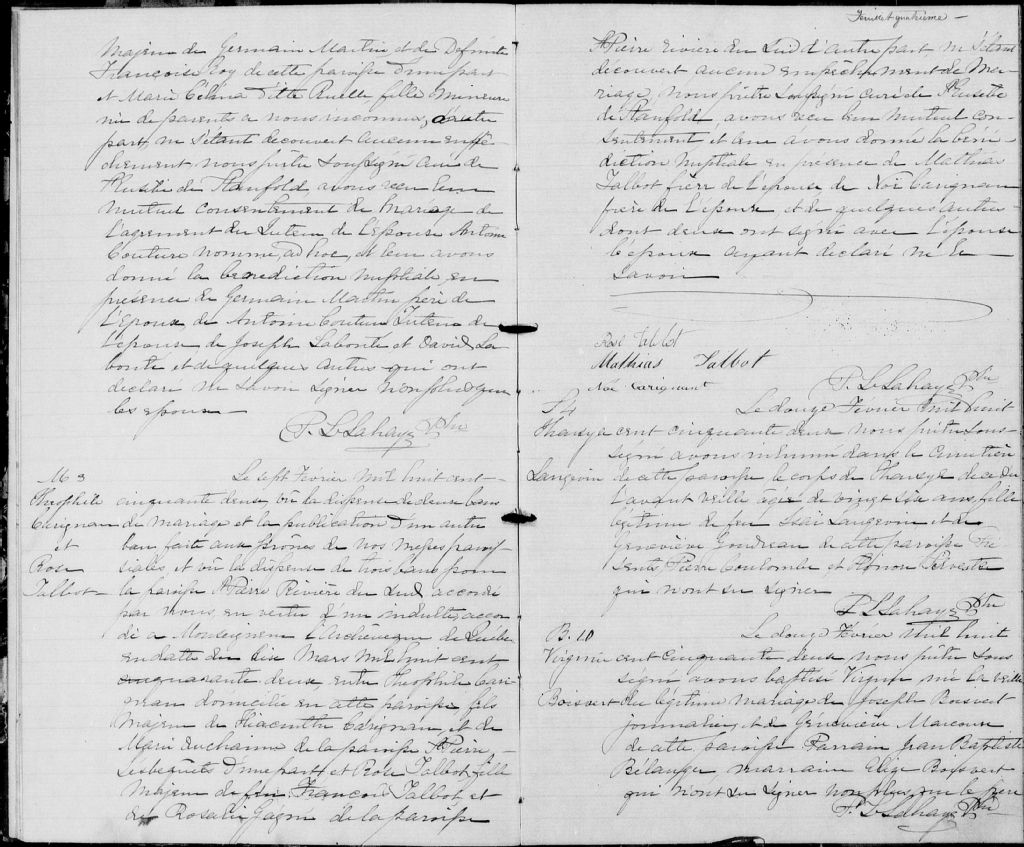 majeur de Germain Martin et de Defunte
Françoise Roy de cette paroisse d'une part
et Marie Célina dette Ruelle fille mineure
née de parents a nous inconnus, d'autre
part, ne s'étant decouvert aucun empê-
chement nous prêtre soussigné curé de
Eusèbe de Stanfold avons reçu leur
mutuel consentement de mariage de
l'agrement du Tuteur de l'Epouse Antoine
Couture nommé, ad hoc, et leur avons
donné la benediction nuptiale en
presence de Germain Martin père de
l'Epoux de Antoine Couture Tuteur de
l'epouse de Joseph Labonté et David La-
bonté et de quelques autres qui ont
declaré ne savoir signer non plus que
les epoux —
P. L. Lahaye Ptre
M 3
Théophile
Carignan
et
Rose
Talbot
Le sept Février mil huit cent-
cinquante deux, vû la dispense de deux bans
de mariage et la publication d'un autre
ban faite aux prônes de nos messes parois-
siales et vû la dispense de trois bans pour
la paroisse St Pierre Rivière du Sud accordé
par nous, en vertu d'un indult, accor-
dé a Monseigneur l'Archevêque de Québec
en datte du dix Mars mil huit cent
quarante deux, entre Théophile Cari-
gnan domicilié en cette paroisse fils
majeur de Hiacinthe Carignan, et de
Marie Duchanne de la paroisse St Pierre,
Lesbequets d'une part, et Rose Talbot fille
majeure de feu François Talbot et
de Rosalie Gagné de la paroisse
Feuillet quatrieme —
St Pierre rivière du Sud d'autre part ne s'étant
découvert aucun empêchement de Ma-
riage, nous prêtre soussigné curé de St Eusèbe
de Stanfold, avons reçu leur mutuel con-
sentement et leur avons donné la béné-
diction nuptiale en présence de Mathias
Talbot frère de l'épouse de Noë Carignan
frère de l'époux, et de quelques autres
dont deux ont signé avec l'épouse
l'époux ayant declaré ne le
savoir
Rose Talbot
Mathias Talbot
Noé Carignant
P. L. Lahaye Ptre
S 4
Tharsyle
Langevin
Le douze Février mil huit
cent cinquante deux nous prêtre sous-
signé avons inhumé dans le cimetière
de cette paroisse le corps de Tharsyle decedée
l'avant veille agée de vingt six ans, fille
légitime de feu Isaï Langevin et de
Geneviève Gondreau de cette paroisse Pré-
sents, Pierre Coulombe et Honoré
qui n'ont su signer
P. L. Lahaye Ptre
B. 10
Virginie
Boisvert
Le douze Février mil huit
cent cinquante deux, nous prêtre sous
signé avons baptisé Virginie née la veille
du légitime mariage de Joseph Boisvert
journalier, et de Geneviève Marcoux
de cette paroisse Parrain Jean Baptiste
Bélanger marraine Elize Boisvert
qui n'ont su signer non plus que le père
P. L. Lahaye Ptre